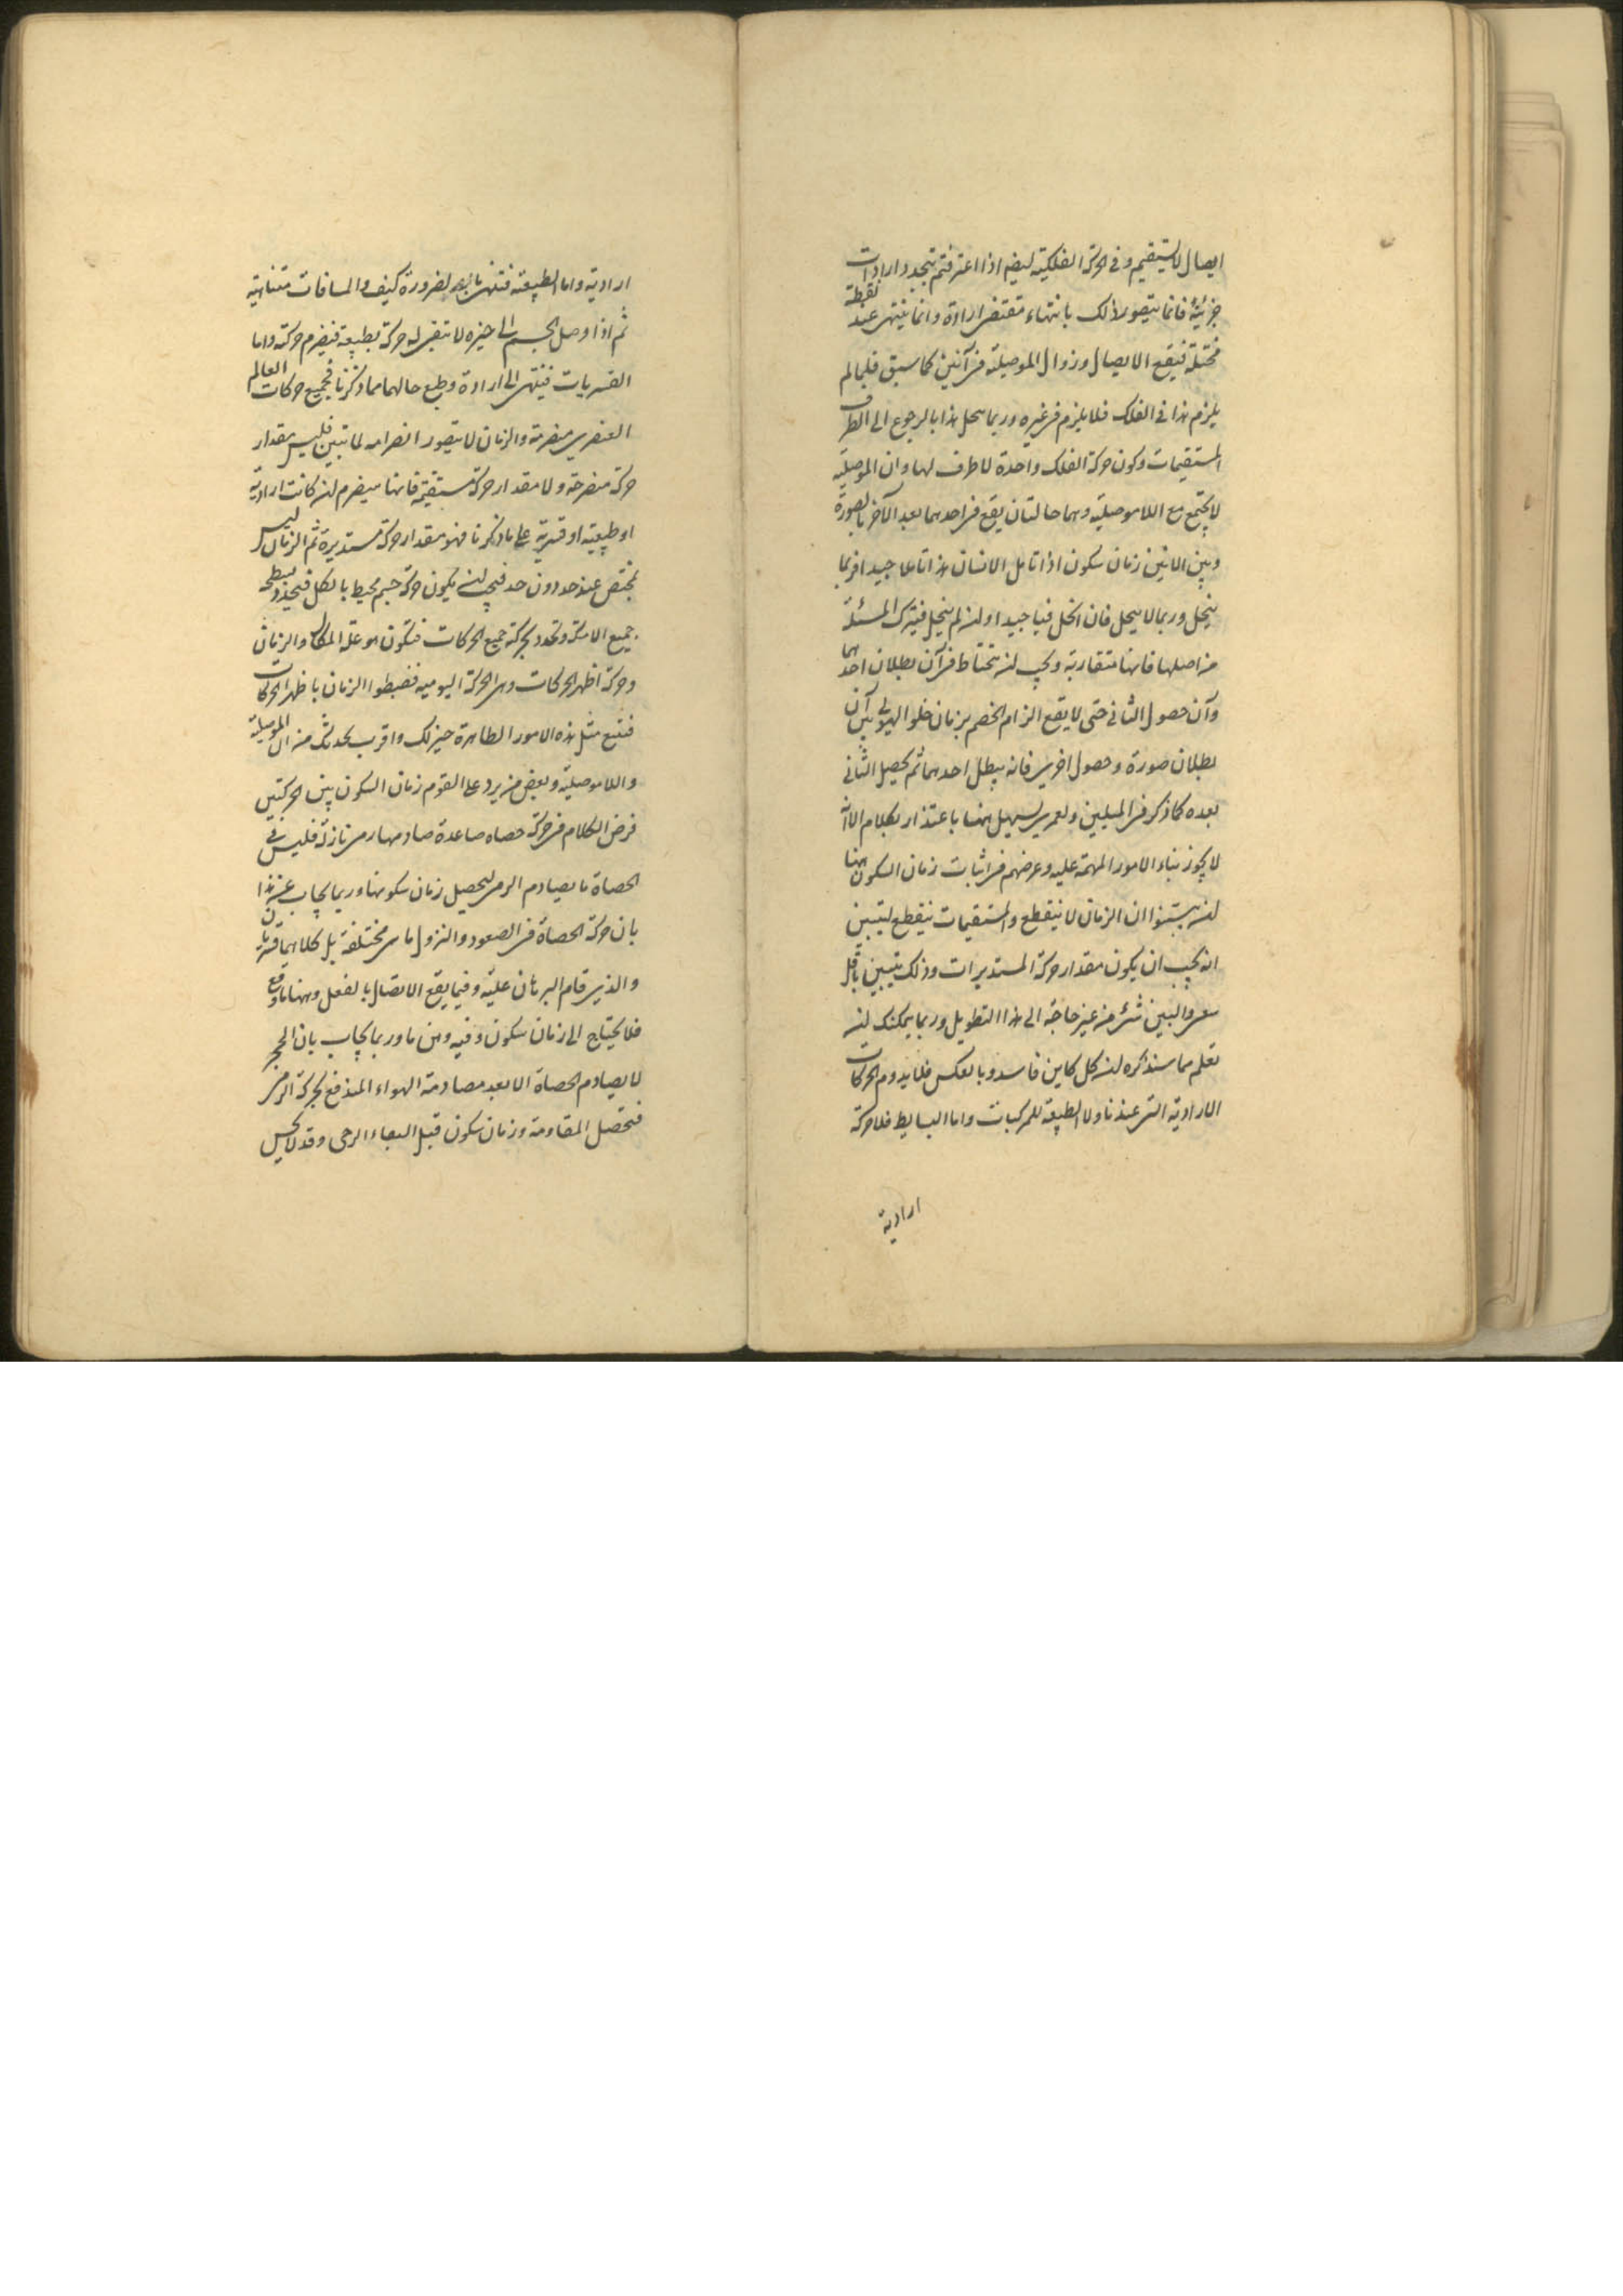 ايصال لا يستقيم وفى الحركة الفلكية ايضا اذا اعترفتم بتجدد ارادات
جزئية فانما يتصور ذلك بانتهاء مقتضى ارادة وانما ينتهى عند نقطة
مختلة فيقع الايصال وزوال الموصلية فى آنين كما سبق فلما لم
يلزم هذا فى الفلك فلا يلزم فى غيره وربما يتمحل هذا بالرجوع الى الطرف
المستقيمات وكون حركة الفلك واحدة لا طرف لها وان الموصلية
لا يجتمع مع اللاموصلية وهما حالتان يقع فى احدهما بعد الآخر بالضرورة
وبين الانين زمان سكون اذا تامل الانسان هذا تاملا جيدا فربما
ينحل وربما لا ينحل فان انحل فيا جيدا وان لم ينحل فيترك المسئلة
من اصلها فانها متقاربة ويجب ان يحتاط فى آن بطلان احدهما
وآن حصول الثانى حتى لا يقع الزام الخصم بزمان خلو الهيولى بين آن
بطلان صورة وحصول اخرى فانه يبطل احدهما ثم يحصل الثانى
بعده كما ذكر فى الميلين ولعمرى يسهل ههنا باعتذار بكلام الا انه
لا يجوز بناء الامور المهمة عليه وغرضهم فى اثبات زمان السكون ههنا
ان يبينوا ان الزمان لا ينقطع والمستقيمات ينقطع ليتبين
انه يجب ان يكون مقدار حركة المستديرات وذلك يتبين باقل
سعى والبين شئ من غير حاجة الى هذا التطويل وربما يمكنك ان
تعلم مما سنذكره ان كل كاين فاسد وبالعكس فلا يدوم الحركات
الارادية التى عندنا ولا الطبيعة للمركبات واما البسايط فلا حركة
ارادية
ارادية واما الطبيعة فتنتهى لضرورة كيف والمسافات متناهية
ثم اذا وصل الجسم الى حيزه لا تبقى له حركة بطبيعة فينصرم حركته واما
القسريات فينتهى الى ارادة وطبع حالهما مما ذكرنا فجميع حركات العالم
العنصرى منصرمة والزمان لا يتصور انصرامه لما تبين فليس بمقدار
حركة منصرمة ولا مقدار حركة مستقيمة فانها سينصرم ان كانت ارادية
او طبيعية او قسرية على ما ذكرنا فهو مقدار حركة مستديرة ثم الزمان ليس
يختص عند حد دون حد فيجب ان يكون حركة جسم محيط بالكل فيتحدد بسطحه
جميع الامكنة وتحدد بحركته جميع الحركات فتكون هو علة المكان والزمان
وحركته اظهر الحركات وهى الحركة اليومية فضبطوا الزمان باظهر الحركات
فتتبع مثل هذه الامور الظاهرة خير لك واقرب بحدسك من الموصلية
واللاموصلية وبعض من يرد على القوم زمان السكون بين الحركتين
فرض الكلام فى حركة حصاه صاعدة صادمها رحى نازلة فليس فى
الحصاة ما يصادم الرحى ليحصل زمان سكونها وربما يجاب عن هذا
بان حركة الحصاة فى الصعود والنزول ما هى مختلفة بل كلاهما قسريتان
والذى قام البرهان عليه وفيما يقع الاتصال بالفعل وههنا ما وقع
فلا يحتاج الى زمان سكون وفيه وهن ما وربما يجاب بان الحجر
لا يصادم الحصاة الا بعد مصادمة الهواء المندفع لحركة الرحى
فتحصل المقاومة وزمان سكون قبل التقاء الرحى وقد لا يحس